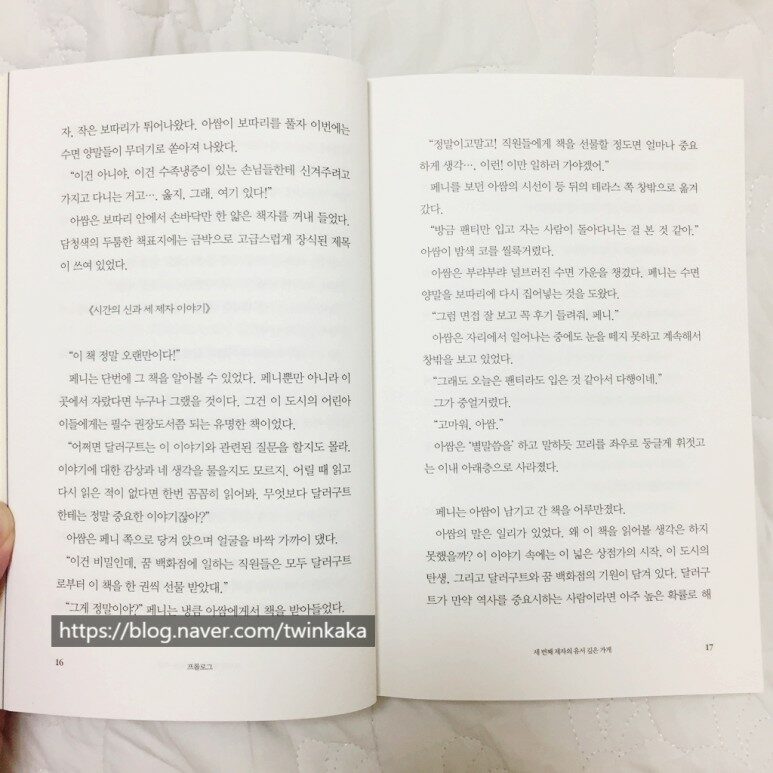 자. 작은 보따리가 튀어나왔다. 아쌈이 보따리를 풀자 이번에는
수면 양말들이 무더기로 쏟아져 나왔다.
“이건 아니야. 이건 수족냉증이 있는 손님들한테 신겨주려고
가지고 다니는 거고…. 옳지, 그래. 여기 있다!”
아쌈은 보따리 안에서 손바닥만 한 얇은 책자를 꺼내 들었다.
담청색의 두툼한 책표지에는 금박으로 고급스럽게 장식된 제목
이 쓰여 있었다.
《시간의 신과 세 제자 이야기》
“이 책 정말 오랜만이다!”
페니는 단번에 그 책을 알아볼 수 있었다. 페니뿐만 아니라 이
곳에서 자랐다면 누구나 그랬을 것이다. 그건 이 도시의 어린아
이들에게는 필수 권장도서쯤 되는 유명한 책이었다.
“어쩌면 달러구트는 이 이야기와 관련된 질문을 할지도 몰라.
이야기에 대한 감상과 네 생각을 물을지도 모르지. 어릴 때 읽고
다시 읽은 적이 없다면 한번 꼼꼼히 읽어봐. 무엇보다 달러구트
한테는 정말 중요한 이야기잖아?”
아쌈은 페니 쪽으로 당겨 앉으며 얼굴을 바싹 가까이 댔다.
“이건 비밀인데, 꿈 백화점에 일하는 직원들은 모두 달러구트
로부터 이 책을 한 권씩 선물 받았대.”
“그게 정말이야?” 페니는 냉큼 아쌈에게서 책을 받아들었다.
https://blog.naver.com/twinkaka
16
프롤로그
“정말이고말고! 직원들에게 책을 선물할 정도면 얼마나 중요
하게 생각…. 이런! 이만 일하러 가야겠어.”
페니를 보던 아쌈의 시선이 등 뒤의 테라스 쪽 창밖으로 옮겨
갔다.
“방금 팬티만 입고 자는 사람이 돌아다니는 걸 본 것 같아.”
아쌈이 밤색 코를 씰룩거렸다.
아쌈은 부랴부랴 널브러진 수면 가운을 챙겼다. 페니는 수면
양말을 보따리에 다시 집어넣는 것을 도왔다.
“그럼 면접 잘 보고 꼭 후기 들려줘, 페니.”
아쌈은 자리에서 일어나는 중에도 눈을 떼지 못하고 계속해서
창밖을 보고 있었다.
“그래도 오늘은 팬티라도 입은 것 같아서 다행이네.”
그가 중얼거렸다.
“고마워, 아쌈.”
아쌈은 ‘별말씀을’ 하고 말하듯 꼬리를 좌우로 둥글게 휘젓고
는 이내 아래층으로 사라졌다.
페니는 아쌈이 남기고 간 책을 어루만졌다.
아쌈의 말은 일리가 있었다. 왜 이 책을 읽어볼 생각은 하지
못했을까? 이 이야기 속에는 이 넓은 상점가의 시작, 이 도시의
탄생, 그리고 달러구트와 꿈 백화점의 기원이 담겨 있다. 달러구
트가 만약 역사를 중요시하는 사람이라면 아주 높은 확률로 해
세 번째 제자의 유서 깊은 가게
17